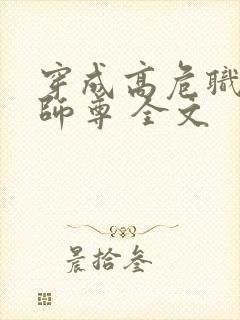 穿成高危職
師尊 全文
晨拾叁